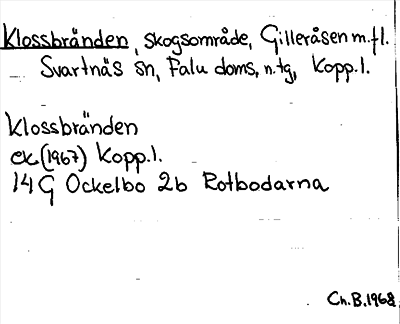 Klossbränden, skogsområde, Gilleråsen m.fl.
Svartnäs sn, Falu doms, n.tg, Kopp.l.
Klossbränden
ek.(1967) Kopp.l.
14 G Ockelbo 2b Rotbodarna
Ch.B.1968